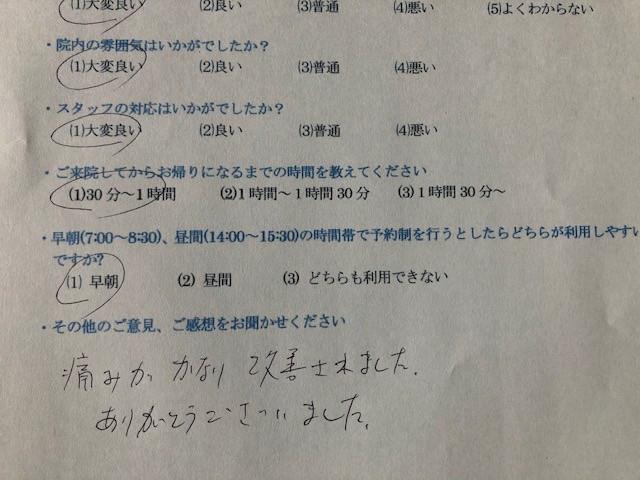 (1)大変良い (2)良い (3)普通 (4)悪い (5)よくわからない
・院内の雰囲気はいかがでしたか？
(1)大変良い (2)良い (3)普通 (4)悪い
・スタッフの対応はいかがでしたか？
(1)大変良い (2)良い (3)普通 (4)悪い
・ご来院してからお帰りになるまでの時間を教えてください
(1)30分～1時間 (2)1時間～1時間30分 (3)1時間30分～
・早朝(7:00～8:30)、昼間(14:00～15:30)の時間帯で予約制を行うとしたらどちらが利用しやすい
ですか?
(1) 早朝 (2) 昼間 (3) どちらも利用できない
・その他のご意見、ご感想をお聞かせください
痛みがかなり改善されました.
ありがとうございました.